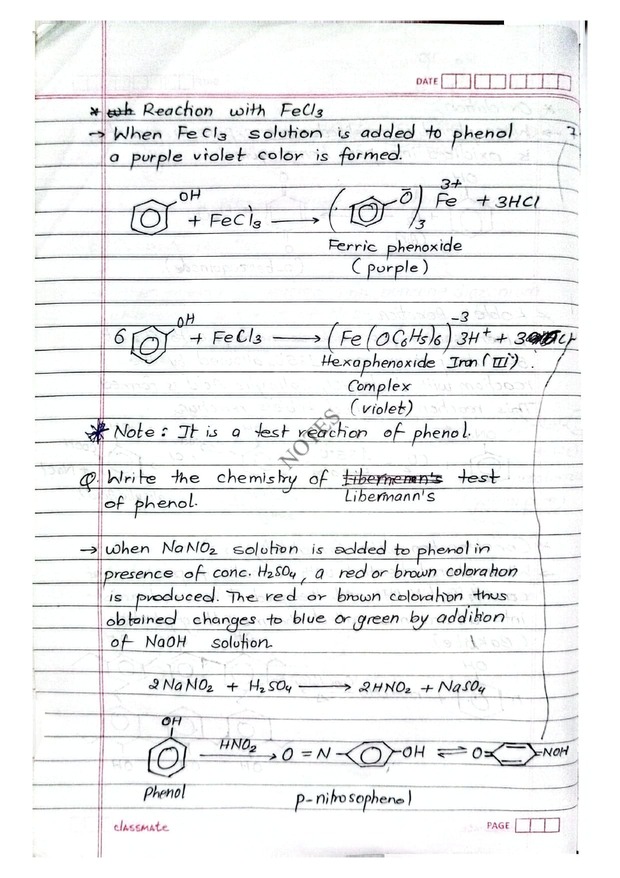 DATE
* Reaction with FeCl3
→ When FeCl3 solution is added to phenol
a purple violet color is formed.
OH + FeCl3 ⟶ ( Ō )3 Fe 3+ + 3HCl
Ferric phenoxide
(purple)
6 OH + FeCl3 ⟶ (Fe(OC6H5)6)-3 3H+ + 3
Hexaphenoxide Iron(III)
Complex
(violet)
* Note: It is a test reaction of phenol.
NOTES
Q. Write the chemistry of Libermann's test
of phenol.
→ when NaNO2 solution is added to phenol in
presence of conc. H2SO4, a red or brown coloration
is produced. The red or brown coloration thus
obtained changes to blue or green by addition
of NaOH solution.
2NaNO2 + H2SO4 ⟶ 2HNO2 + NaSO4
OH HNO2 ⟶ O=N- -OH ⇌ O= =NOH
Phenol
p-nitrosophenol
classmate
PAGE